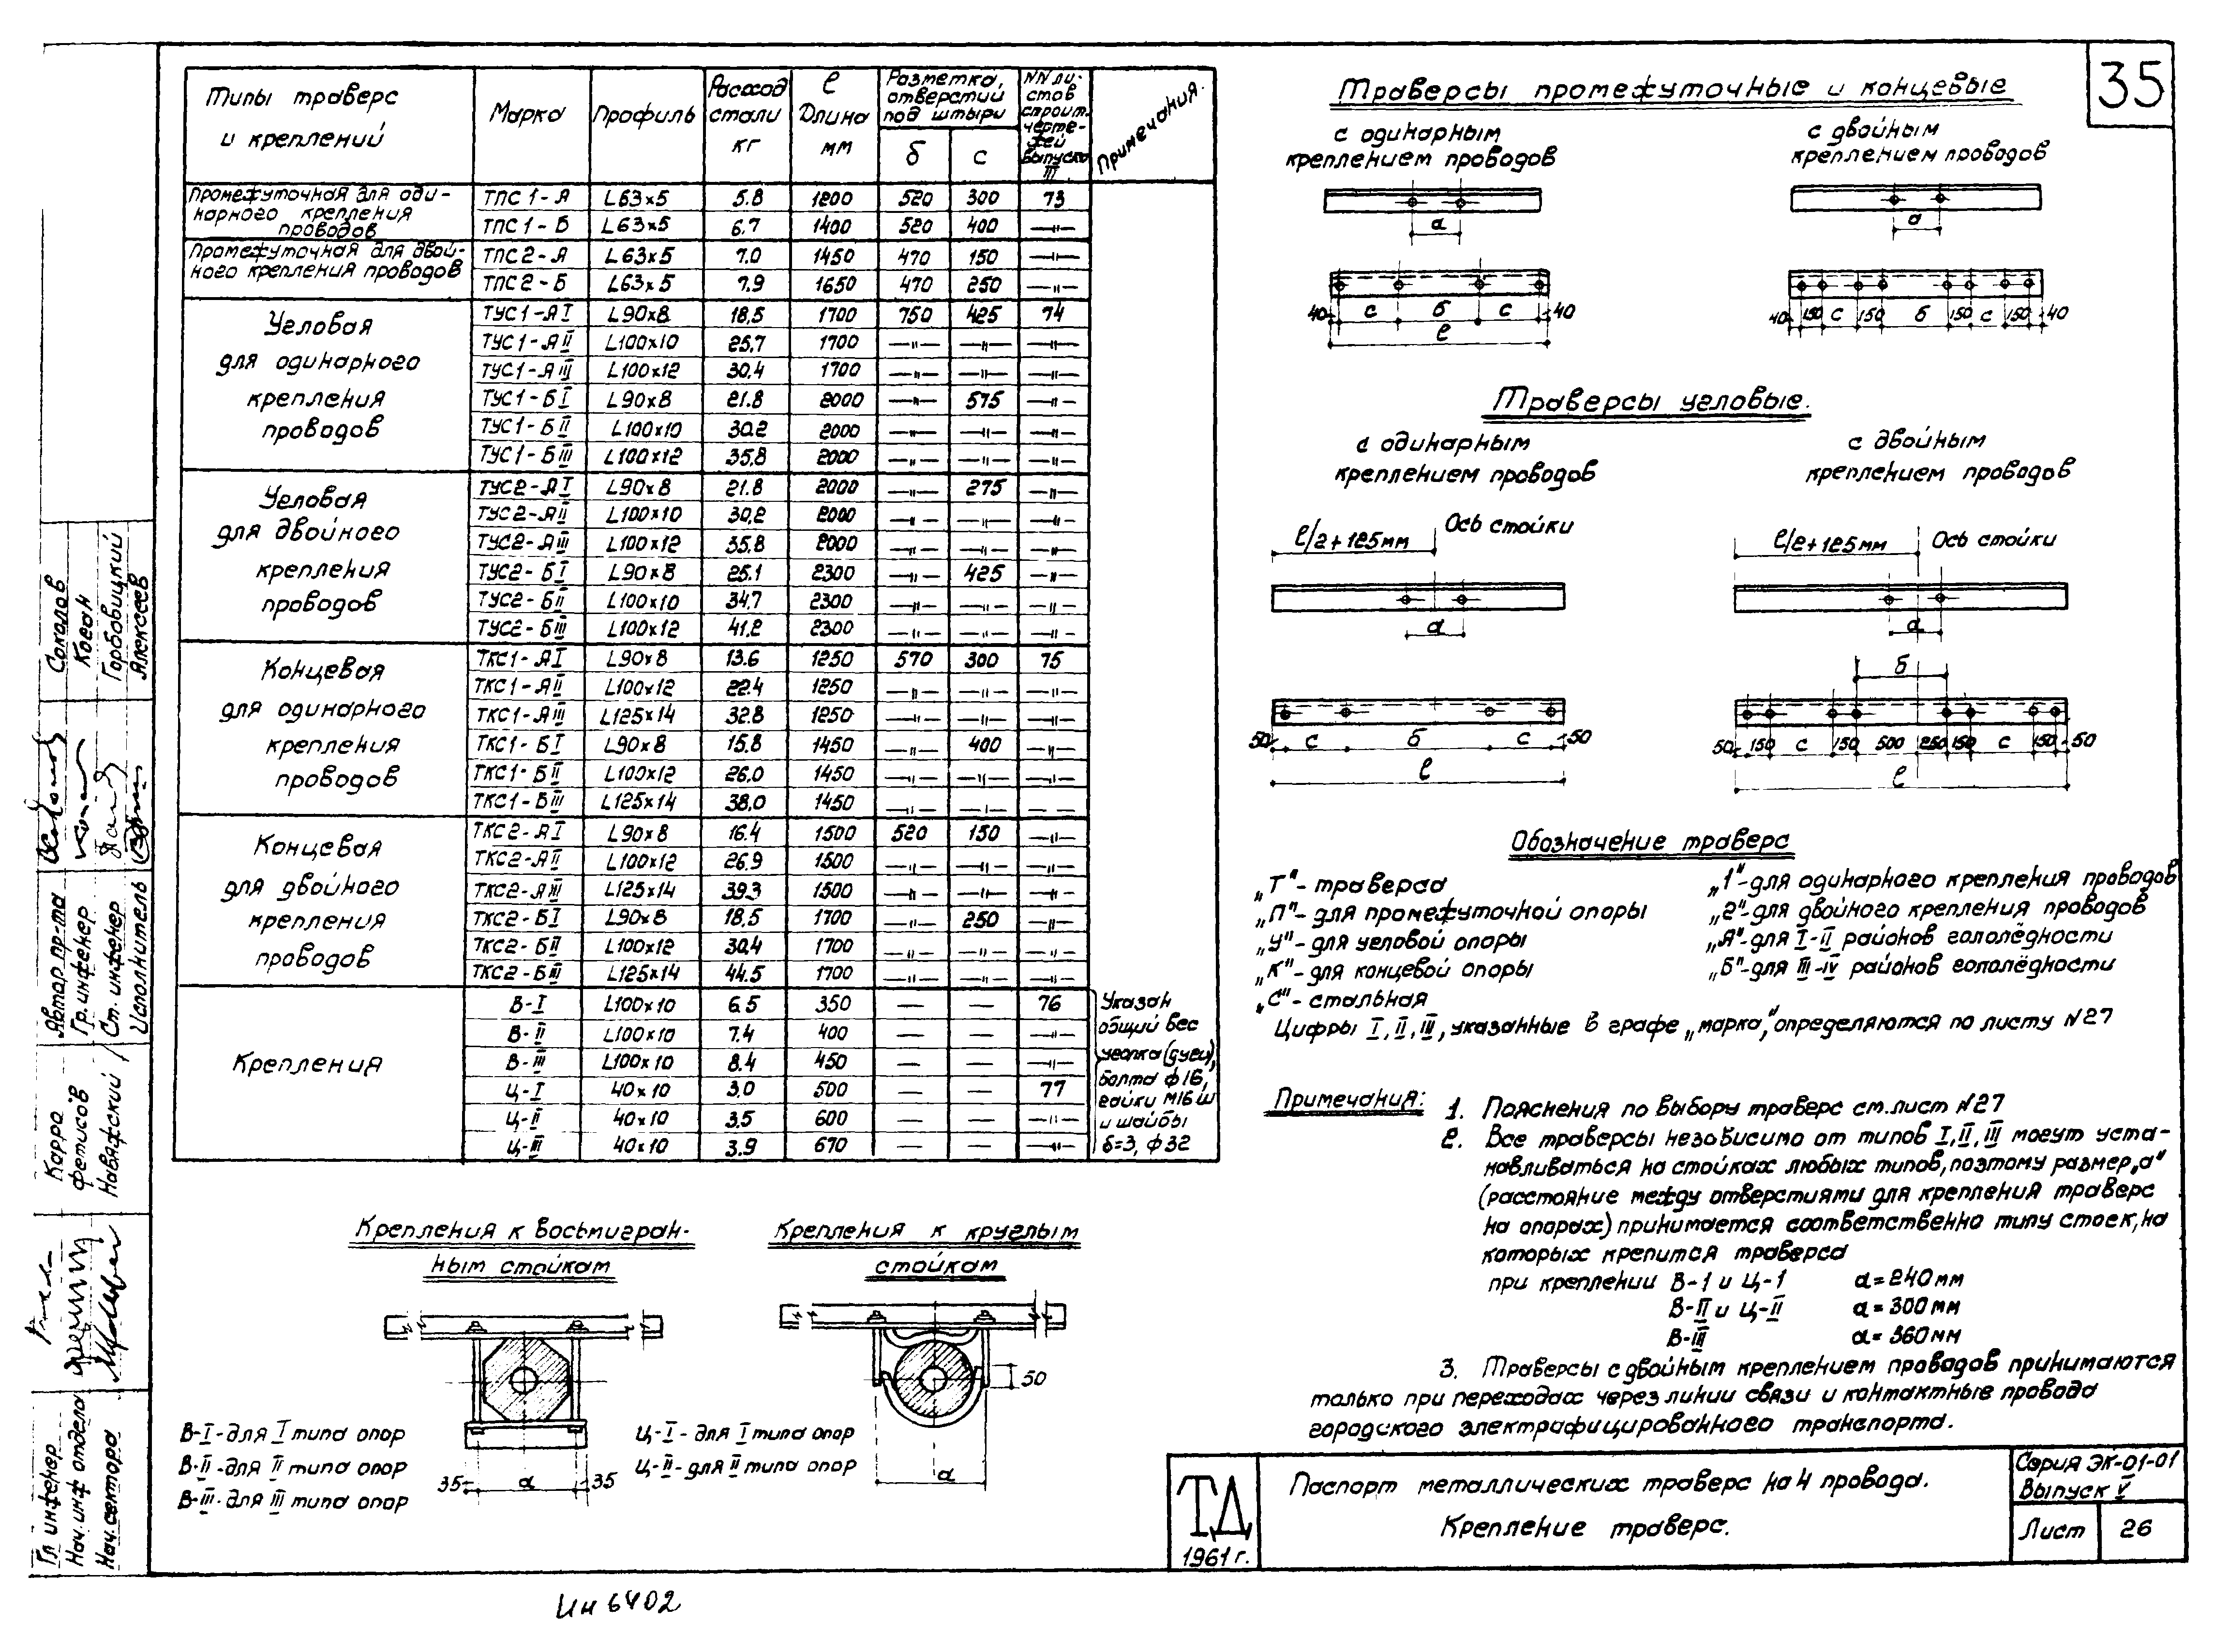 35
Типы траверс и креплений | Марка | Профиль | Расход стали кг | ℓ Длина мм | Разметка отверстий под штыри б | с | NN листов строит. чертежей выпуска III | Примечания.
Промежуточная для одинарного крепления проводов
ТПС1-А L63×5 5.8 1200 520 300 73
ТПС1-Б L63×5 6.7 1400 520 400 —"—
Промежуточная для двойного крепления проводов
ТПС2-А L63×5 7.0 1450 470 150 —"—
ТПС2-Б L63×5 7.9 1650 470 250 —"—
Угловая для одинарного крепления проводов
ТУС1-АI L90×8 18,5 1700 750 425 74
ТУС1-АII L100×10 25,7 1700 —"— —"— —"—
ТУС1-АIII L100×12 30,4 1700 —"— —"— —"—
ТУС1-БI L90×8 21.8 2000 —"— 575 —"—
ТУС1-БII L100×10 30.2 2000 —"— —"— —"—
ТУС1-БIII L100×12 35,8 2000 —"— —"— —"—
Угловая для двойного крепления проводов
ТУС2-АI L90×8 21.8 2000 —"— 275 —"—
ТУС2-АII L100×10 30,2 2000 —"— —"— —"—
ТУС2-АIII L100×12 35.8 2000 —"— —"— —"—
ТУС2-БI L90×8 25.1 2300 —"— 425 —"—
ТУС2-БII L100×10 34,7 2300 —"— —"— —"—
ТУС2-БIII L100×12 41,2 2300 —"— —"— —"—
Концевая для одинарного крепления проводов
ТКС1-АI L90×8 13.6 1250 570 300 75
ТКС1-АII L100×12 22.4 1250 —"— —"— —"—
ТКС1-АIII L125×14 32.8 1250 —"— —"— —"—
ТКС1-БI L90×8 15.8 1450 —"— 400 —"—
ТКС1-БII L100×12 26.0 1450 —"— —"— —"—
ТКС1-БIII L125×14 38.0 1450 —"— —"— — —
Концевая для двойного крепления проводов
ТКС2-АI L90×8 16.4 1500 520 150 —"—
ТКС2-АII L100×12 26,9 1500 —"— —"— —"—
ТКС2-АIII L125×14 39.3 1500 —"— —"— —"—
ТКС2-БI L90×8 18,5 1700 —"— 250 —"—
ТКС2-БII L100×12 30,4 1700 —"— —"— —"—
ТКС2-БIII L125×14 44.5 1700 —"— —"— —"—
Крепления
В-I L100×10 6.5 350 — — 76
В-II L100×10 7.4 400 — — —"—
В-III L100×10 8.4 450 — — —"—
Ц-I 40×10 3.0 500 — — 77
Ц-II 40×10 3.5 600 — — —"—
Ц-III 40×10 3.9 670 — — —"—
Указан
общий вес
уголка (дуги),
болта ф16,
гайки М16 ш
и шайбы
б=3, ф32
Крепления к восьмигран-
ным стойкам
35 а 35
В-I-для I типа опор
В-II-для II типа опор
В-III-для III типа опор
Крепления к круглым
стойкам
50
а
Ц-I-для I типа опор
Ц-II-для II типа опор
Траверсы промежуточные и концевые
с одинарным
креплением проводов
а
40 с б с 40
ℓ
с двойным
креплением проводов
а
40 150 с 150 б 150 с 150 40
Траверсы угловые.
с одинарным
креплением проводов
ℓ/2+125мм Ось стойки
а
50 с б с 50
ℓ
с двойным
креплением проводов
ℓ/2+125мм Ось стойки
а
б
50 150 с 150 500 250 150 с 150 50
ℓ
Обозначение траверс
„Т"- траверса
„П"- для промежуточной опоры
„У"- для угловой опоры
„К"- для концевой опоры
„С"- стальная
„1"-для одинарного крепления проводов
„2"-для двойного крепления проводов
„А"-для I-II районов гололёдности
„Б"-для III-IV районов гололёдности
Цифры I, II, III, указанные в графе „марка," определяются по листу N27
Примечания: 1. Пояснения по выбору траверс см. лист N27
2. Все траверсы независимо от типов I, II, III могут уста-
навливаться на стойках любых типов, поэтому размер „а"
(расстояние между отверстиями для крепления траверс
на опорах) принимается соответственно типу стоек, на
которых крепится траверса
при креплении В-1 и Ц-1 а=240мм
В-II и Ц-II а=300мм
В-III а=360мм
3. Траверсы с двойным креплением проводов принимаются
только при переходах через линии связи и контактные провода
городского электрафицированного транспорта.
ТД
1961г.
Паспорт металлических траверс на 4 провода.
Крепление траверс.
Серия ЭК-01-01
Выпуск V
Лист 26
Гл инженер
Нач. инж отдела
Нач. сектора
Карра
Фетисов
Навяжский
Автор пр-та
Гр. инженер
Ст. инженер
Исполнитель
Соколов
Коган
Горбовицкий
Алексеев
Ин 6402